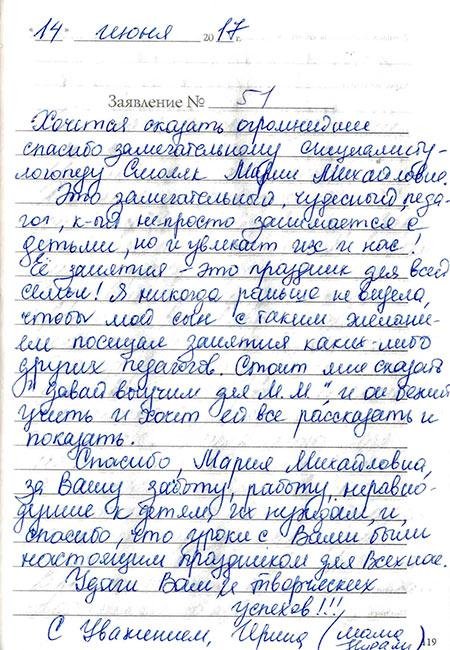 "14" июня 2017 г.
Заявление № 51
Хочится сказать огромнейшее
спасибо замечательному специалисту-
логопеду Смоляк Марии Михайловне.
Это замечательный, чудесный педа-
гог, к-ый не просто занимается с
детьми, но и увлекает их и нас!
Её занятия - это праздник для всей
семьи! Я никогда раньше не видела,
чтобы мой сын с таким желани-
ем посещал занятия каких-либо
других педагогов. Стоит мне сказать
"давай выучим для М.М", и он бежит
учить и хочет ей все рассказать и
показать.
Спасибо, Мария Михайловна,
за Вашу заботу, работу, неравно-
душие к детям, их нуждам, и
спасибо, что уроки с Вами были
настоящим праздником для всех нас.
Удачи Вам и творческих
успехов!!!
С уважением, Ирина (мама
119